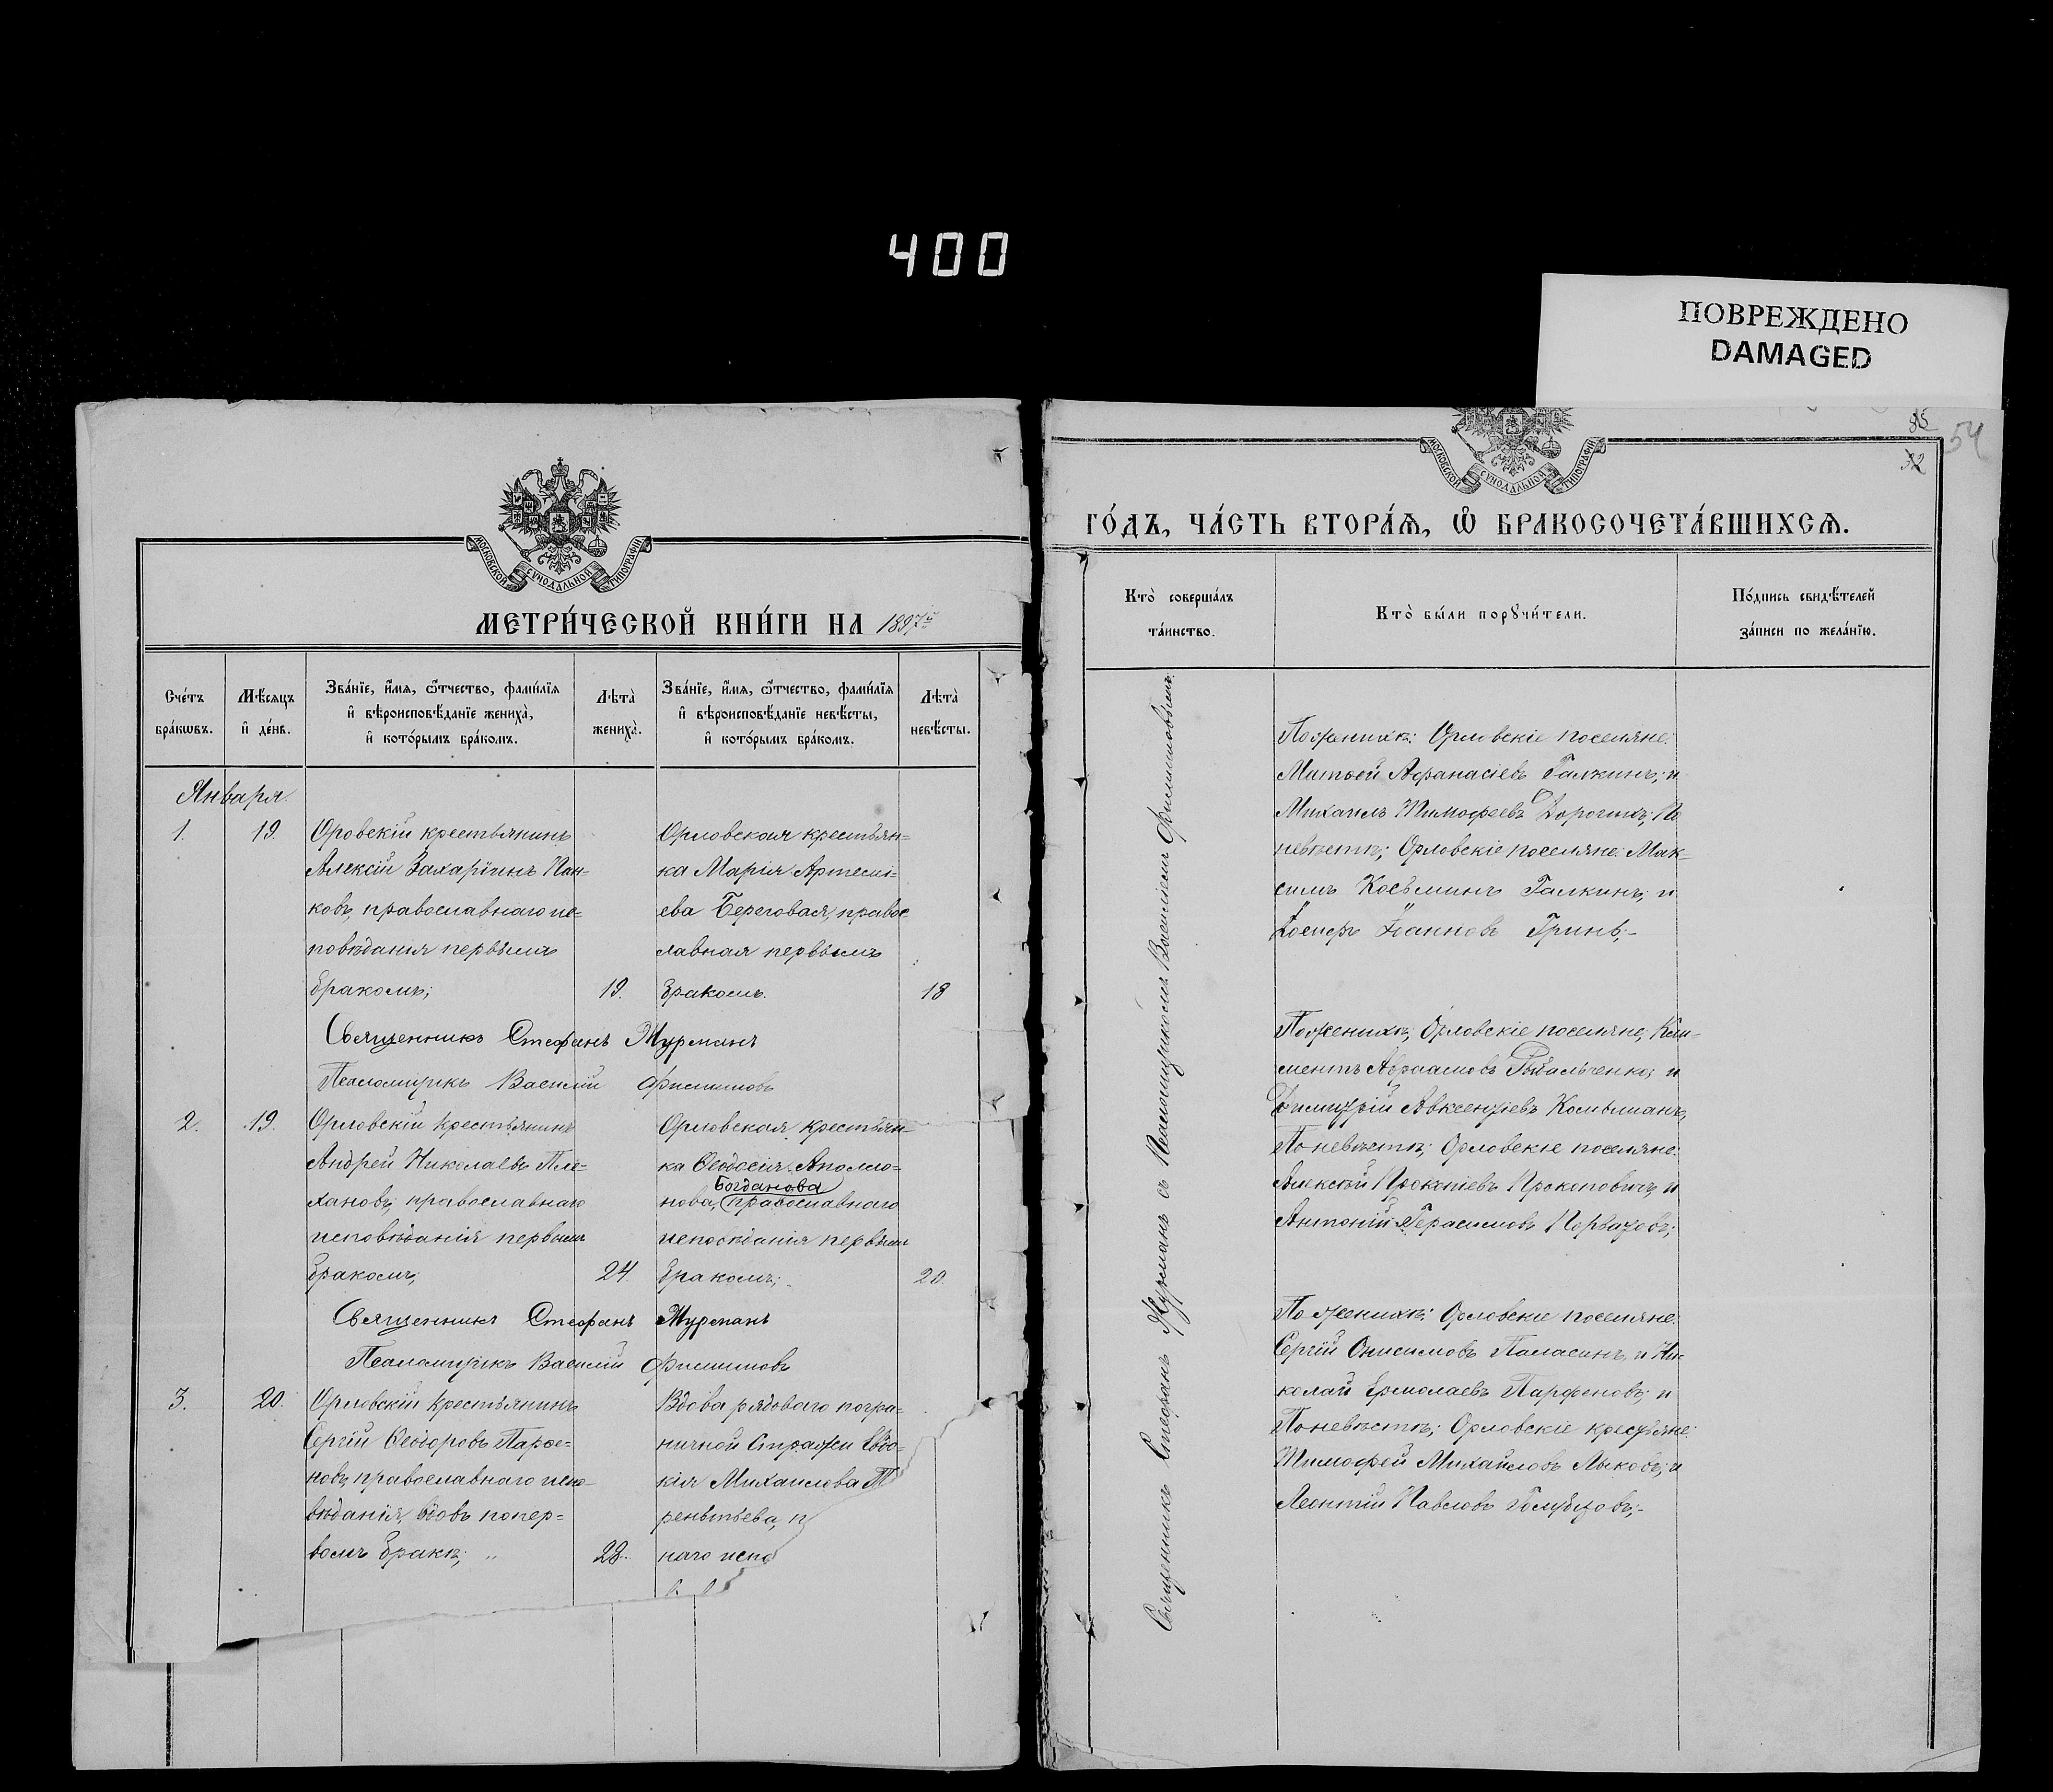 400
ПОВРЕЖДЕНО
DAMAGED
МОСКОВСКОЙ СУНОДАЛЬНОЙ ТИПОГРАФІИ
МЕТРИ́ЧЕСКОЙ КНИ́ГИ НА 1897й
Сче́тъ бра́кωвъ.
Мѣ́сяцъ и҆ де́нь.
Зва́нїе, и҆́мя, ѻ҆́тчество, фами́лїя
и҆ вѣроисповѣ́данїе жениха̀,
и҆ кото́рымъ бра́комъ.
Лѣта̀ жениха̀.
Зва́нїе, и҆́мя, ѻ҆́тчество, фами́лїя
и҆ вѣроисповѣ́данїе невѣ́сты,
и҆ кото́рымъ бра́комъ.
Лѣта̀ невѣ́сты.
Января.
1. 19. Оровскій крестьянинъ
Алексій Захаріинъ Пан-
ковъ, православнаго ис-
повѣданія первымъ
бракомъ; 19.
Орловская крестьян-
ка Марія Артеми-
ева Береговая, правос
лавная первымъ
бракомъ. 18
Священникъ Стефанъ Мурманъ
Псаломщикъ Василій Филиповъ
2. 19. Орловскій крестьянинъ
Андрей Николаевъ Пле-
хановъ, православнаго
исповѣданія первымъ
бракомъ; 24.
Орловская крестьян-
ка Ѳеодосія Аполло-
Богданова
нова, православнаго
исповѣданія первымъ
бракомъ; 20.
Священникъ Стефанъ Мурманъ
Псаломщикъ Василій Филиповъ
3. 20. Орловскій крестьянинъ
Сергій Ѳеодоровъ Парѳе-
новъ, православнаго испо-
вѣданія, вдовъ попер-
вомъ бракѣ; 28.
Вдова рядоваго погра-
ничной Стражи Евдо-
кія Михаилова Т
рентьева, п
наго испо
85
54
32
МОСКОВСКОЙ СУНОДАЛЬНОЙ ТИПОГРАФІИ
ГО́ДЪ, ЧА́СТЬ ВТОРА́Ѧ, Ѽ БРАКОСОЧЕТА́ВШИХСѦ.
Кто̀ соверша́лъ
та́инство.
Кто̀ бы́ли порꙋчи́тели.
По́дпись свидѣ́телей
за́писи по жела́нїю.
Священникъ Стефанъ Мурманъ съ Псаломщикомъ Василіемъ Филиповымъ.
По женихѣ: Орловскіе поселяне:
Матѳей Аѳанасіевъ Галкинъ; и
Михаилъ Тимоѳеевъ По
невѣстѣ; Орловскіе поселяне: Мак-
симъ Косьминъ Галкинъ, и
Іосифъ Іоанновъ Гринь;-
По женихѣ; Орловскіе поселяне, Кли-
ментъ Авраамовъ и
Димитрій Авксентіевъ
По невѣстѣ; Орловскіе поселяне:
Алексѣй Прокопіевъ Прокоповичъ, и
Антоній Герасимовъ
По женихѣ: Орловскіе поселяне:
Сергій Онисимовъ и Ни-
колай Ермолаевъ Парфеновъ; и
По невѣстѣ; Орловскіе крестьяне:
Тимоѳей Михайловъ Лыковъ; и
Леонтій Павловъ Голубцовъ;-